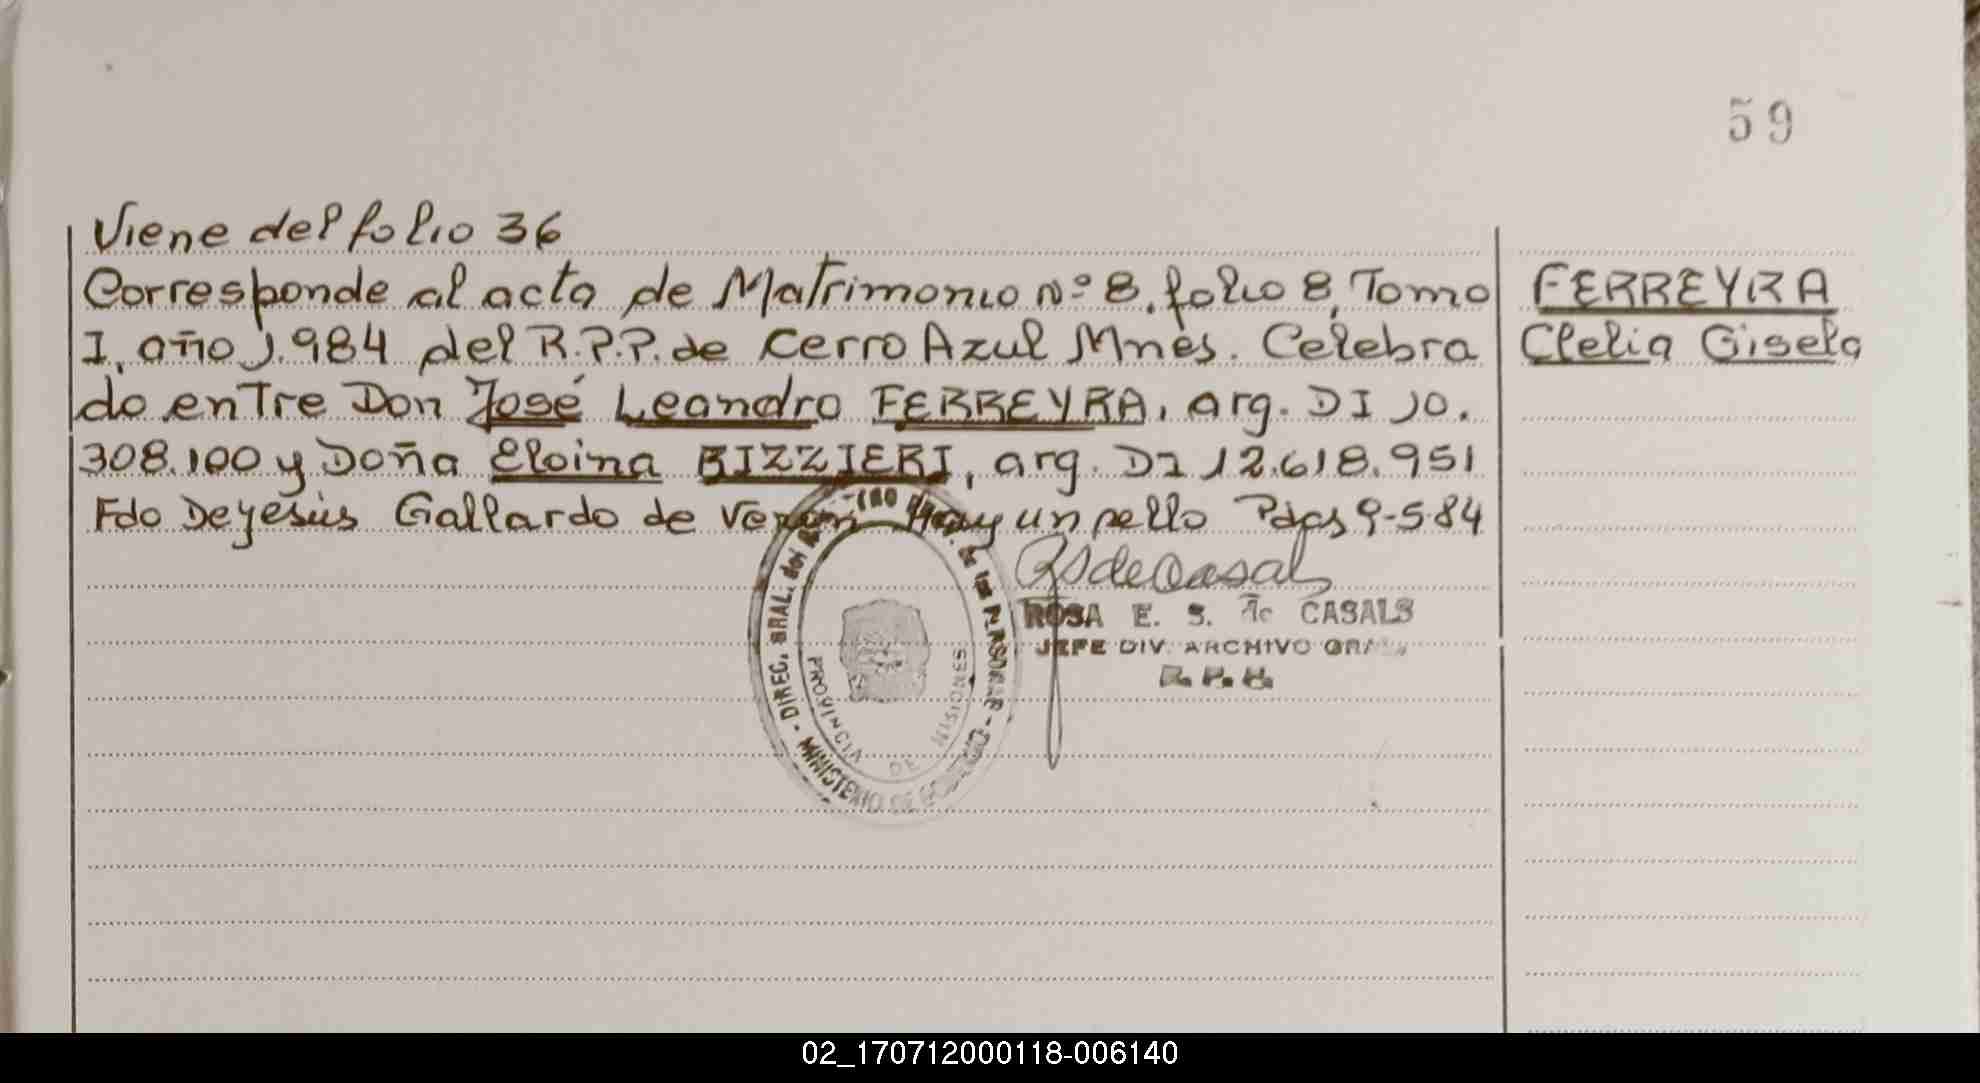 59
Viene del folio 36
Corresponde al acta de Matrimonio Nº 8, folio 8, Tomo
I, año 1.984 del R.P.P. de Cerro Azul Mnes. Celebra
do entre Don José Leandro FERREYRA, arg. DI 10.
308.100 y Doña Eloina BIZZIERI, arg. DI 12.618.951
Fdo De Jesús Gallardo de Hay un sello Pdas 9-5-84
FERREYRA
Clelia Gisela
ROSA E. S. de CASALS
JEFE DIV. ARCHIVO GRAL
R. P. P.
DIREC. GRAL. del de las PERSONAS - MINISTERIO DE GOBIERNO
PROVINCIA DE MISIONES
02_170712000118-006140